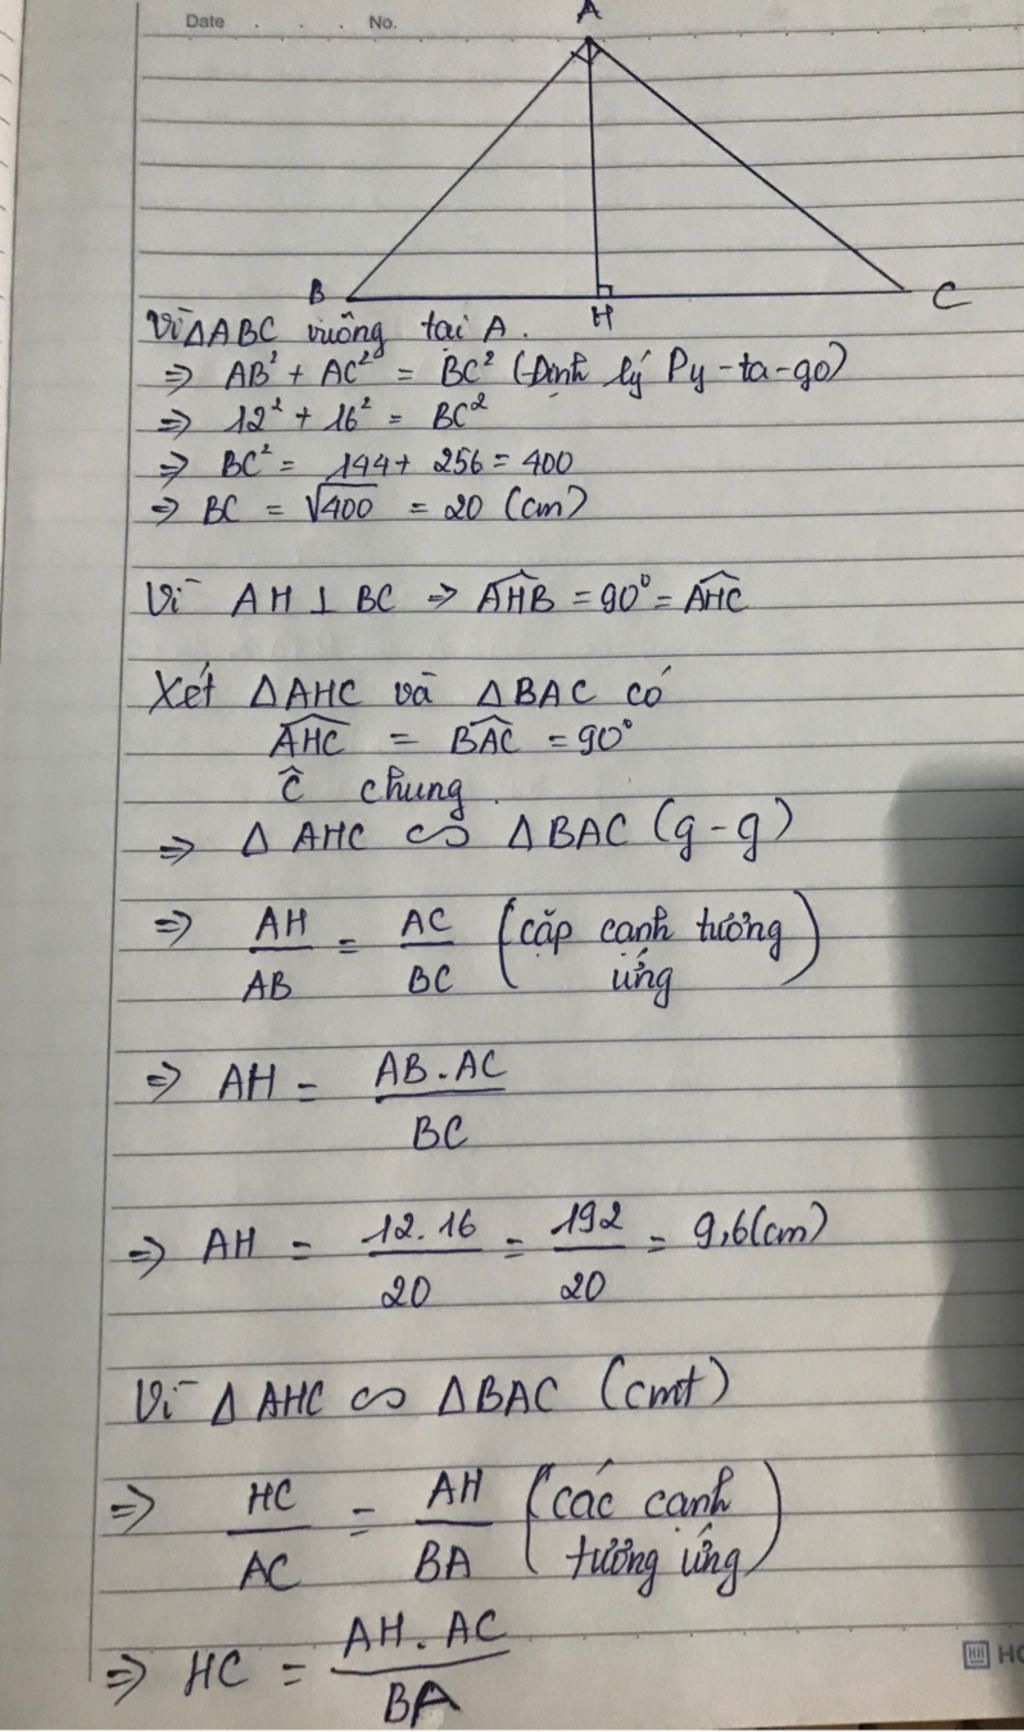 Date . . . No.
A
B
H
C
Vì ΔABC vuông tại A.
⇒ AB² + AC² = BC² (Định lý Py-ta-go)
⇒ 12² + 16² = BC²
⇒ BC² = 144 + 256 = 400
⇒ BC = √400 = 20 (cm)
Vì AH ⊥ BC ⇒ \widehat{AHB} = 90° = \widehat{AHC}
Xét ΔAHC và ΔBAC có
\widehat{AHC} = \widehat{BAC} = 90°
Ĉ chung.
⇒ Δ AHC ∽ ΔBAC (g-g)
⇒ AH/AB = AC/BC (cặp cạnh tương ứng)
⇒ AH = AB.AC/BC
⇒ AH = 12.16/20 = 192/20 = 9,6(cm)
Vì Δ AHC ∽ ΔBAC (cmt)
⇒ HC/AC = AH/BA (các cạnh tương ứng)
⇒ HC = AH.AC/BA